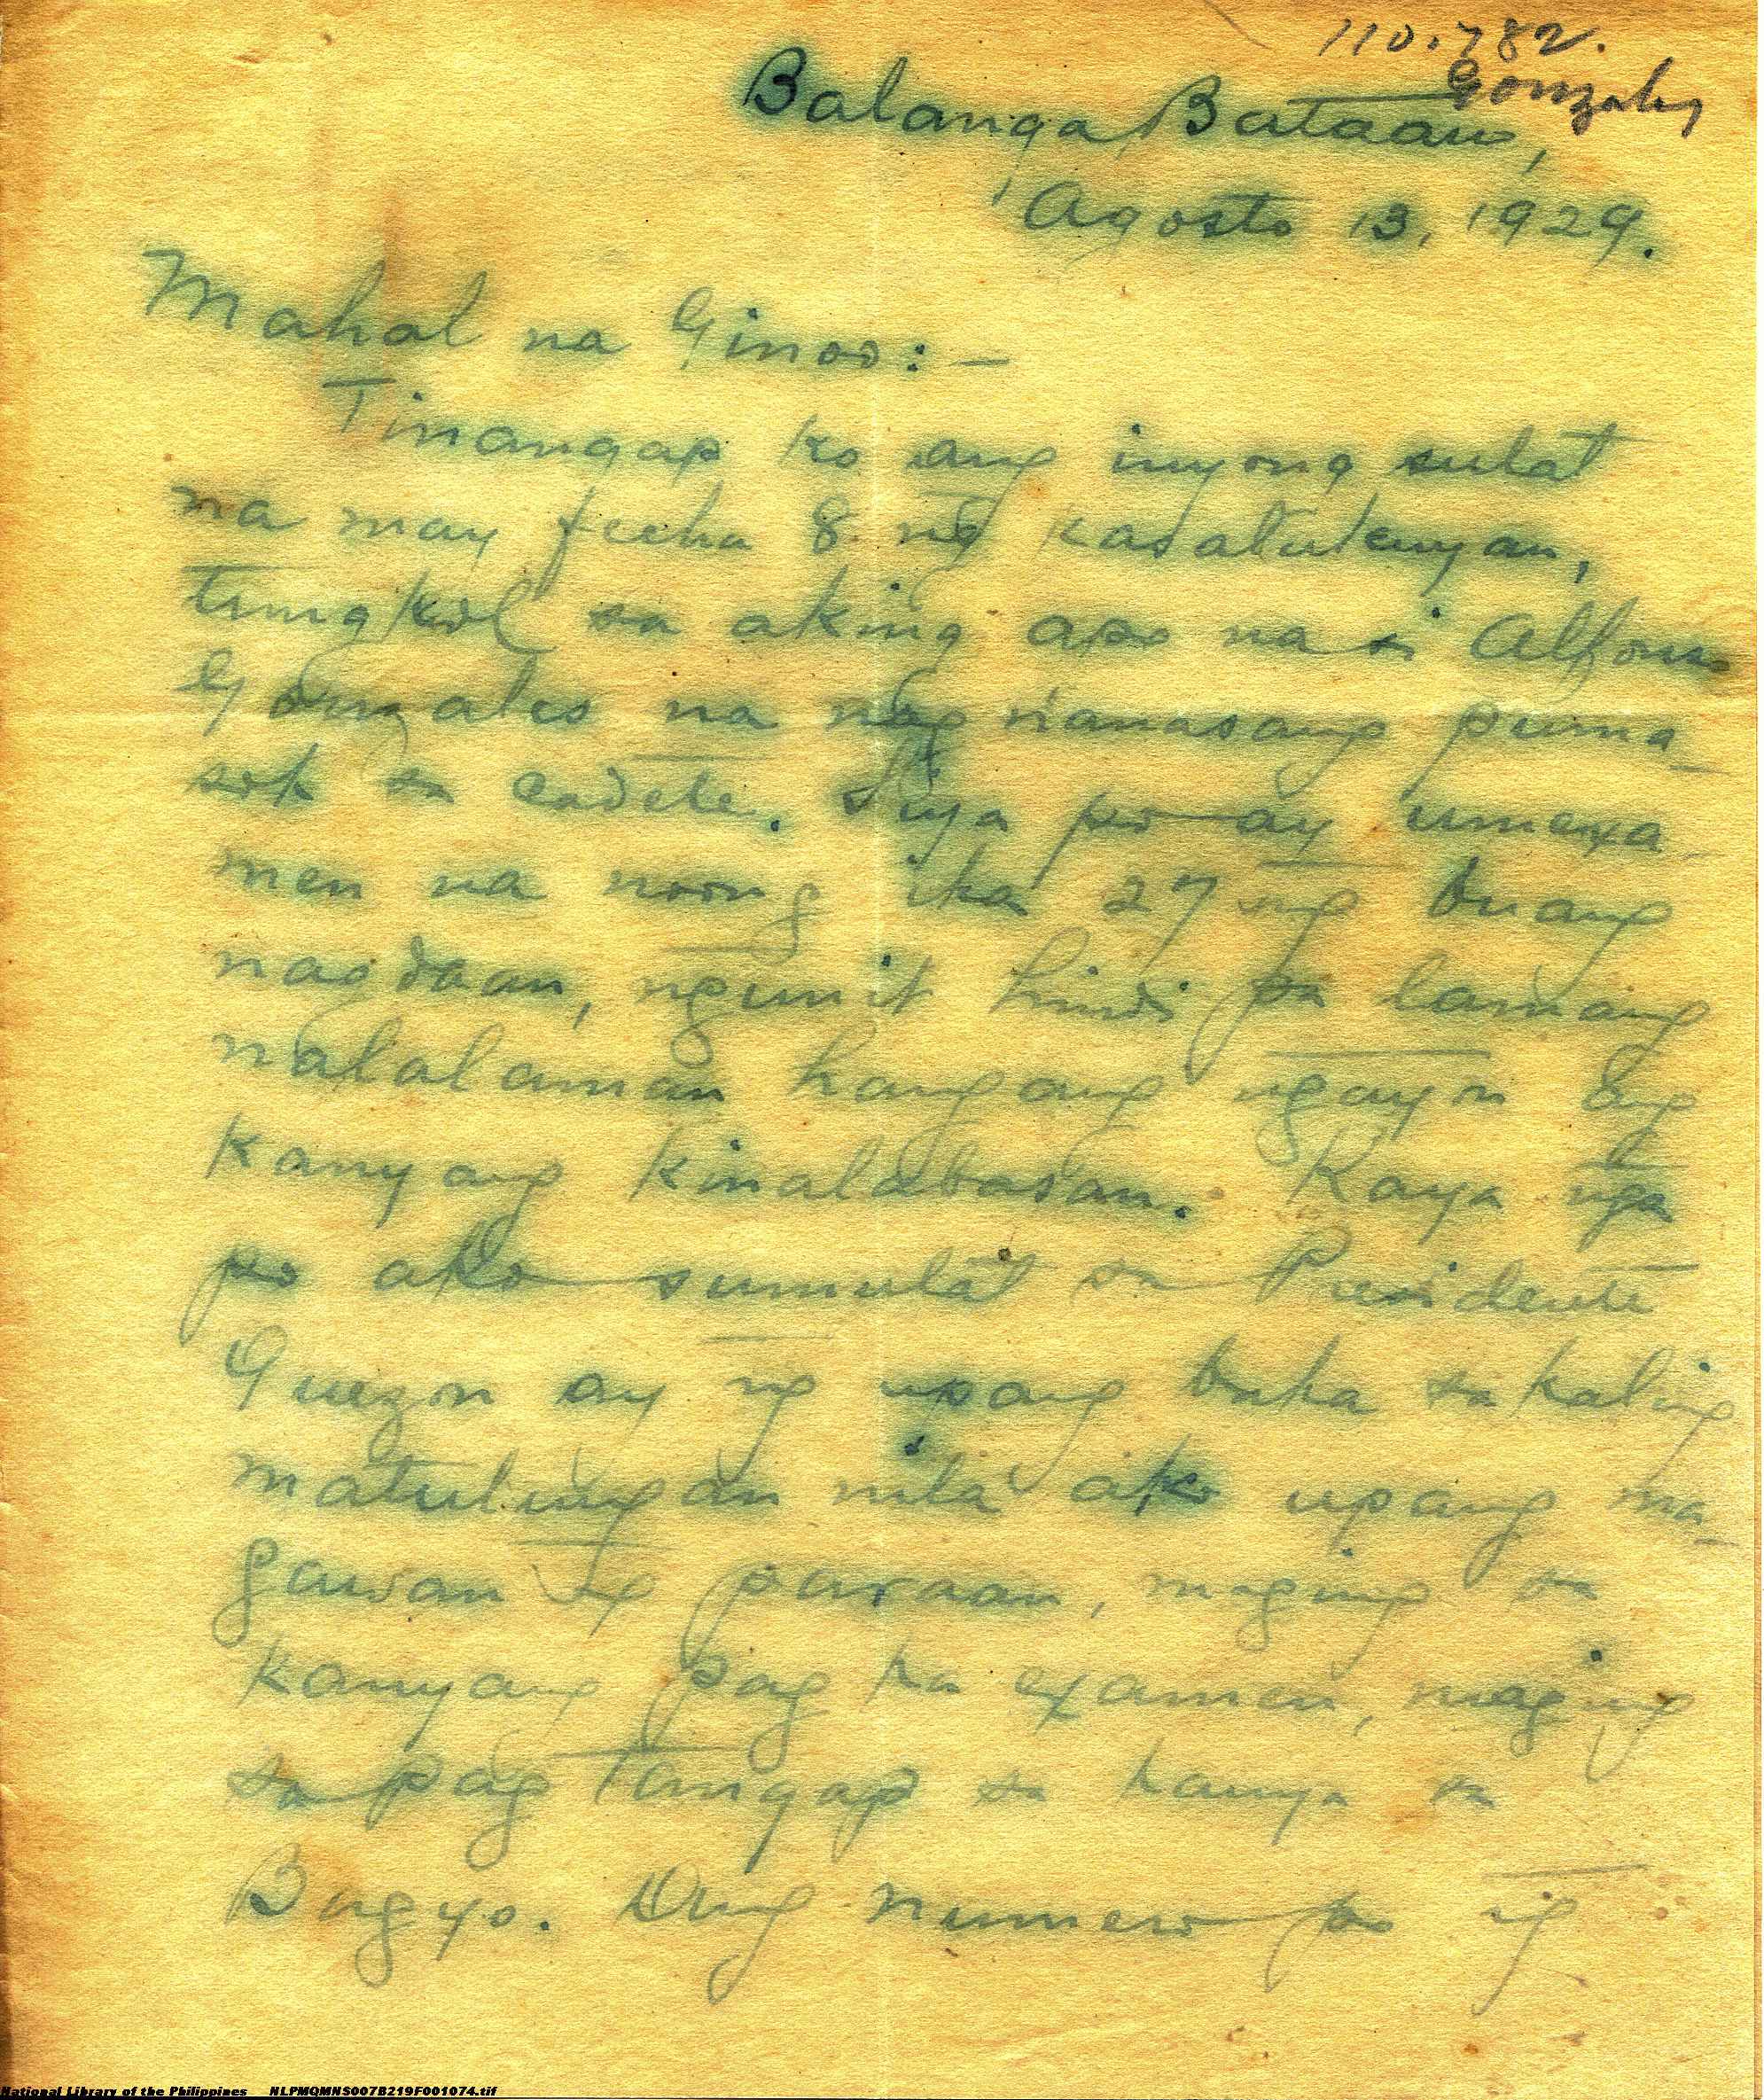 110.782.
Gonzales
Balanga Bataan,
Agosto 13, 1929.
Mahal na Ginoo:—
Tinangap ko ang inyong sulat
na may fecha 8 ng̃ kasalukuyan,
tungkol sa aking apo na si Alfonso
Gonzales na nag nanasang puma-
sok sa cadete. Siya po ay umexa-
men na noong ika 27 ng̃ buang
nagdaan, ng̃unit hindi pa lamang
nalalaman hangang ng̃ayon ang
kanyang kinalabasan. Kaya ng̃a
po ako sumulat sa Presidente
Quezon ay ng̃ upang baka sakaling
matulung̃an nila ako upang ma-
gawan ng̃ paraan, maging sa
kanyang pag ka examen, maging
sa pag tangap sa kanya sa
Bagyo. Ang numero po ng̃
National Library of the Philippines NLPMQMNS007B219F001074.tif